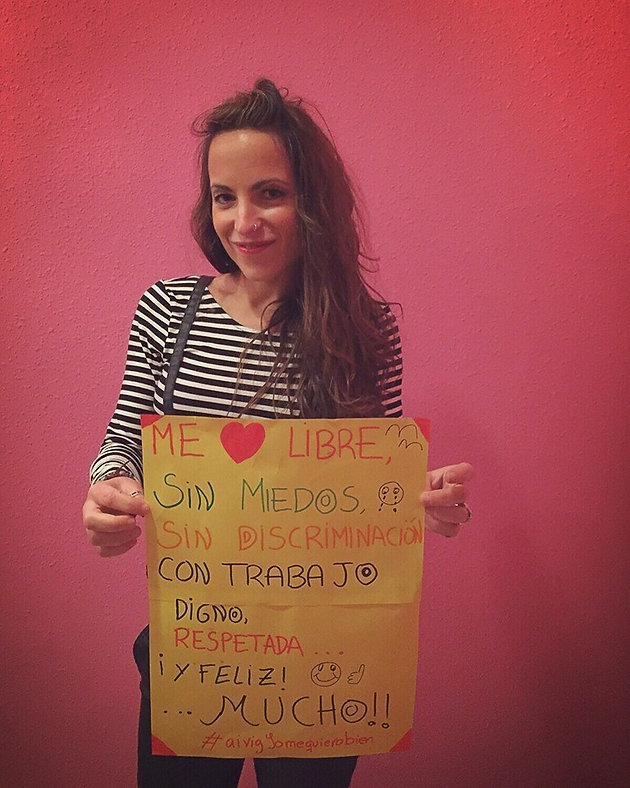 ME ❤ LIBRE,
SIN MIEDOS,
SIN DISCRIMINACIÓN
CON TRABAJO
DIGNO,
RESPETADA ...
¡Y FELIZ!
... MUCHO!!
#aivigYomequierobien